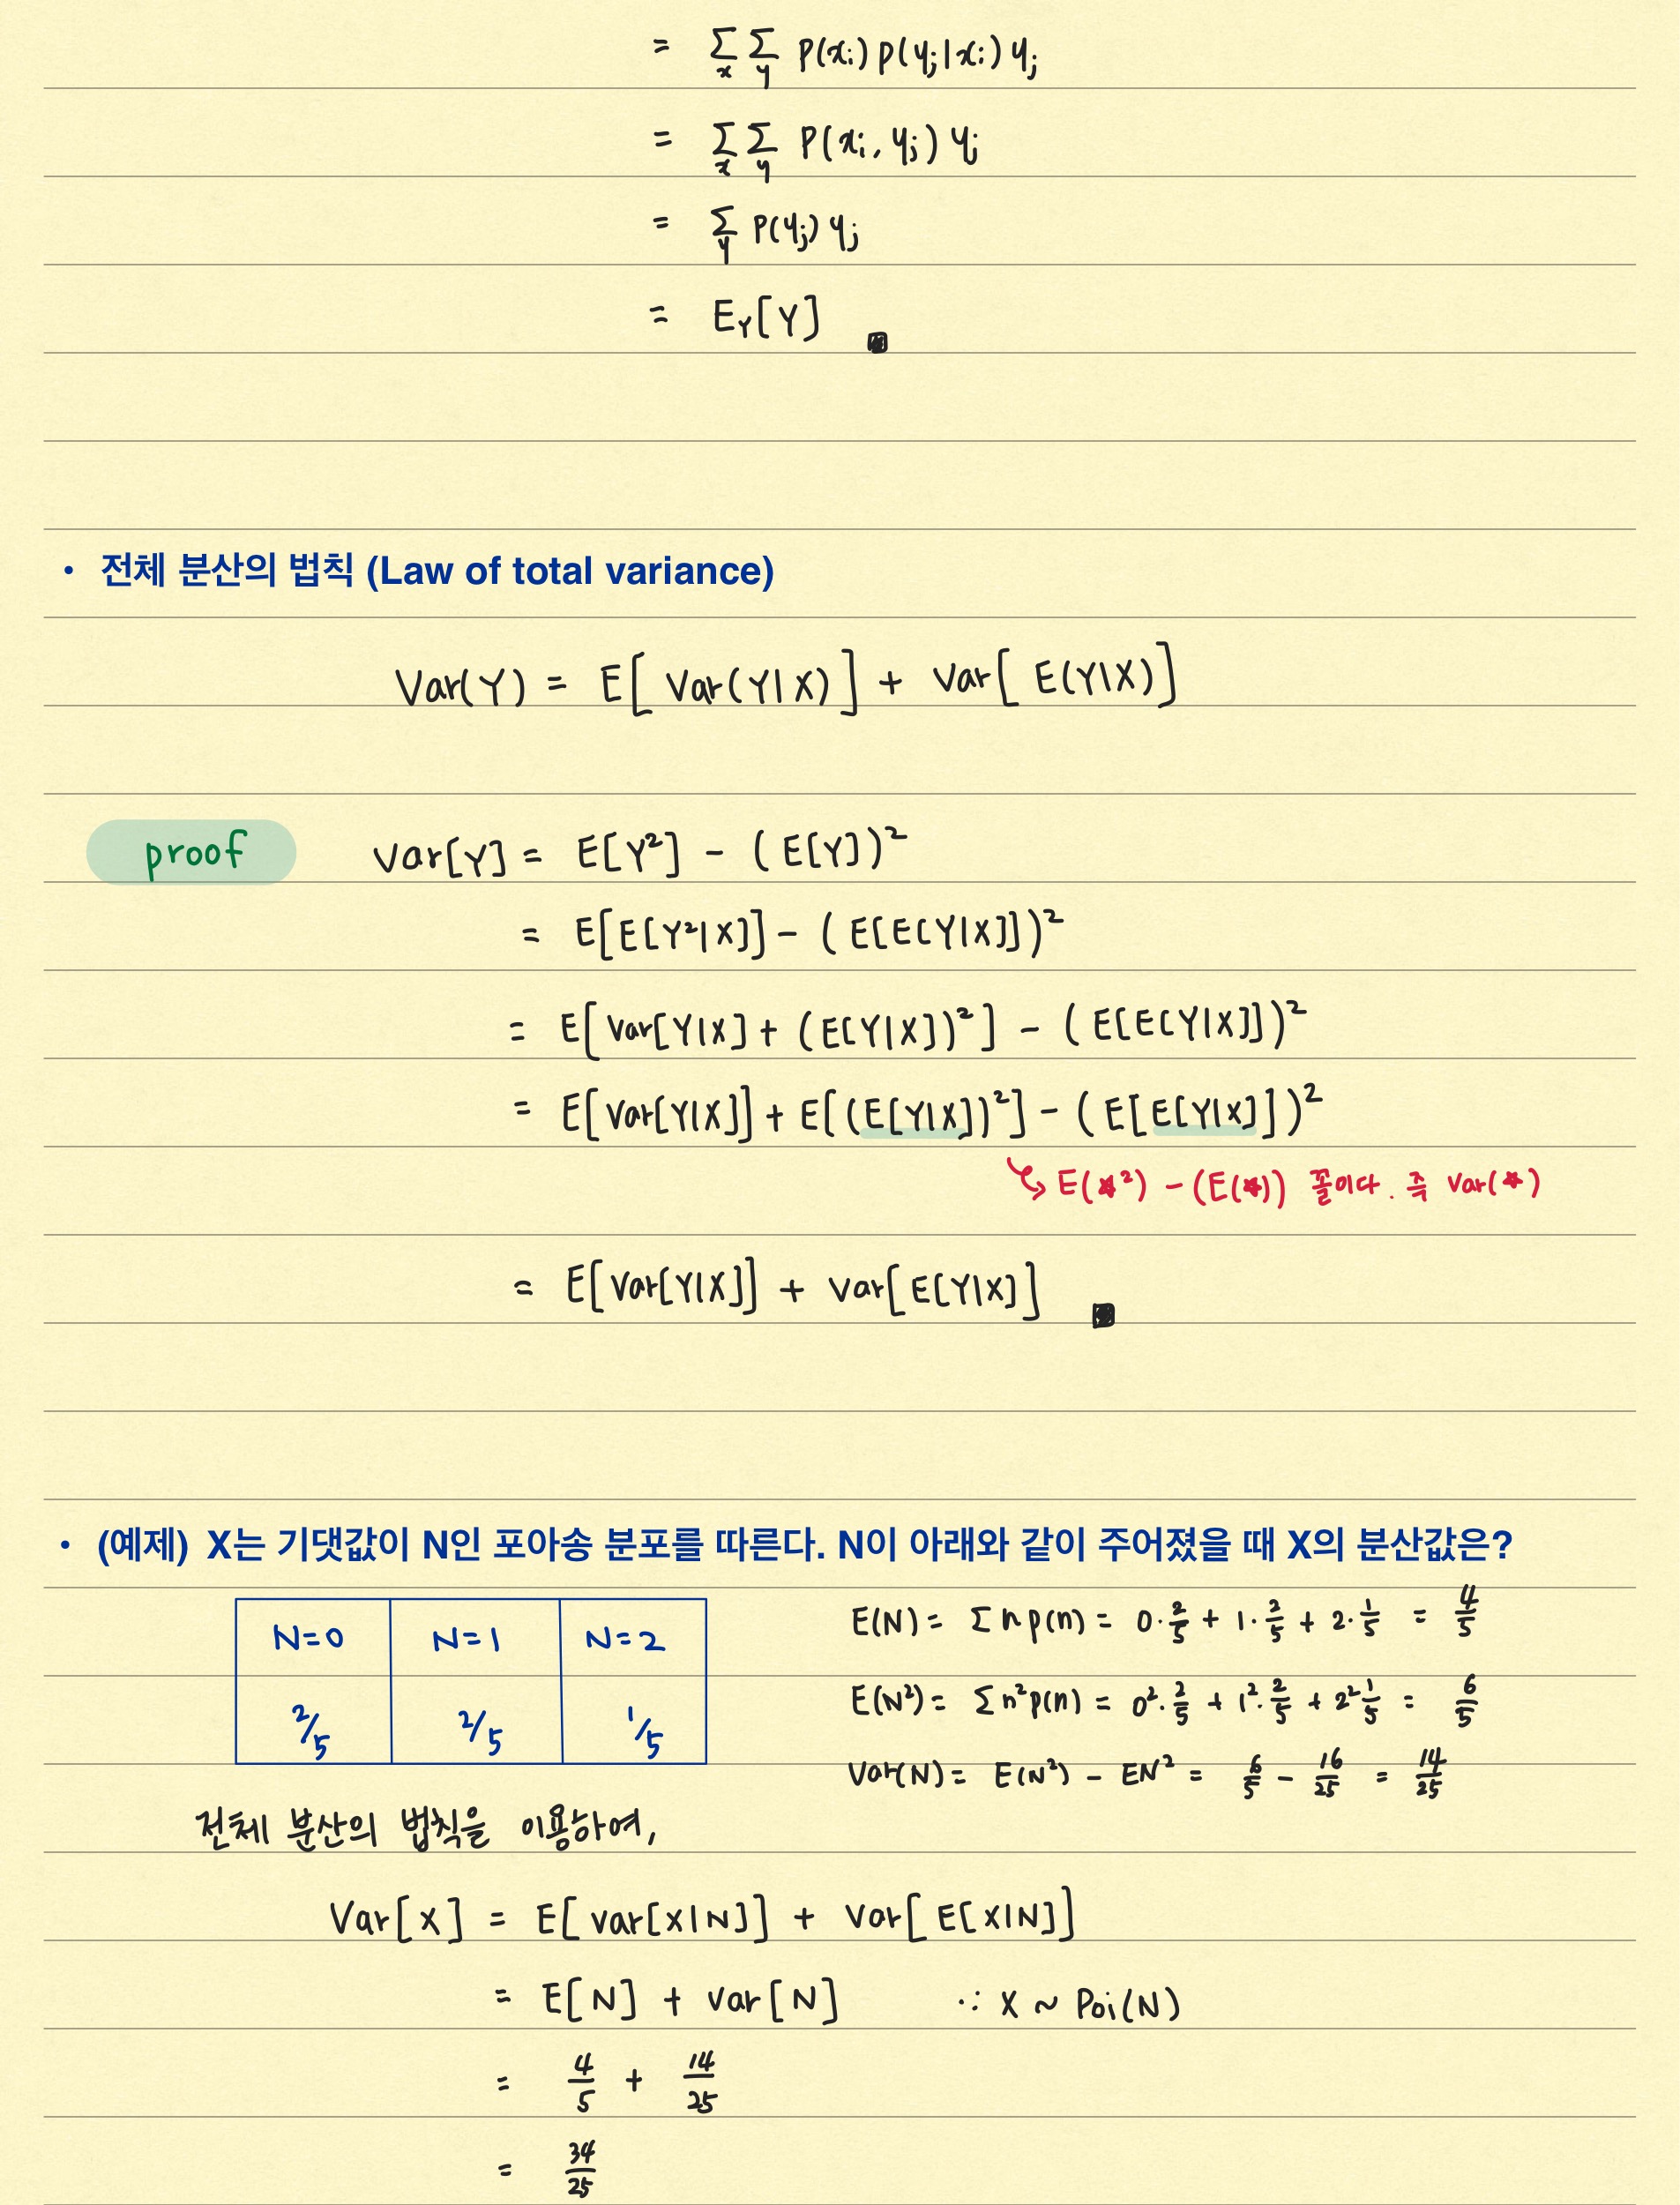 = Σₓ Σ_y P(xᵢ) p(yⱼ|xᵢ) yⱼ
= Σₓ Σ_y P(xᵢ, yⱼ) yⱼ
= Σ_y P(yⱼ) yⱼ
= E_Y[Y]
• 전체 분산의 법칙 (Law of total variance)
Var(Y) = E[Var(Y|X)] + Var[E(Y|X)]
proof Var[Y] = E[Y²] - (E[Y])²
= E[E[Y²|X]] - (E[E[Y|X]])²
= E[Var[Y|X] + (E[Y|X])²] - (E[E[Y|X]])²
= E[Var[Y|X]] + E[(E[Y|X])²] - (E[E[Y|X]])²
↳ E(★²) - (E(★)) 꼴이다. 즉 Var(★)
= E[Var[Y|X]] + Var[E[Y|X]]
• (예제) X는 기댓값이 N인 포아송 분포를 따른다. N이 아래와 같이 주어졌을 때 X의 분산값은?
N=0 N=1 N=2
2/5 2/5 1/5
E(N) = Σ n p(n) = 0·2/5 + 1·2/5 + 2·1/5 = 4/5
E(N²) = Σ n² p(n) = 0²·2/5 + 1²·2/5 + 2² 1/5 = 6/5
Var(N) = E(N²) - EN² = 6/5 - 16/25 = 14/25
전체 분산의 법칙을 이용하여,
Var[X] = E[Var[X|N]] + Var[E[X|N]]
= E[N] + Var[N] ∵ X ~ Poi(N)
= 4/5 + 14/25
= 34/25